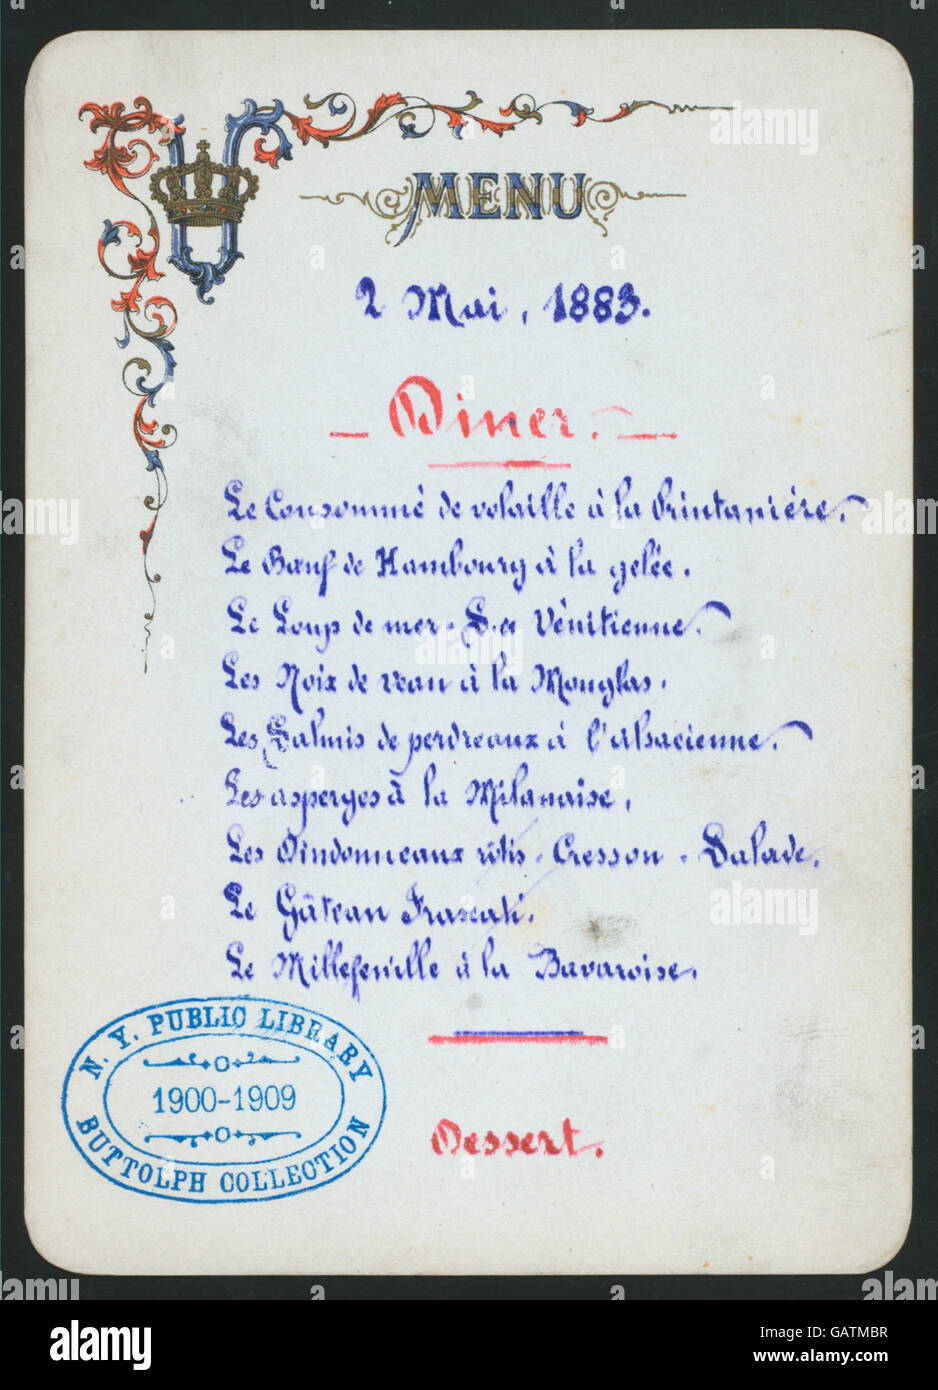 MENU
2 Mai, 1883.
Diner.
Le Consommé de volaille à la Printanière.
Le Bœuf de Hambourg à la gelée.
Le Loup de mer - S.ce Vénitienne.
Les Noix de veau à la Monglas.
Les Salmis de perdreaux à l'alsacienne.
Les asperges à la Milanaise.
Les Dindonneaux rôtis - Cresson - Salade.
Le Gâteau Frascati.
Le Millefeuille à la Bavaroise.
Dessert.
N. Y. PUBLIC LIBRARY
1900-1909
BUTTOLPH COLLECTION
alamy
Image ID: GATMBR
www.alamy.com